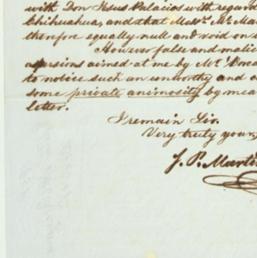 with Don Jesus Palacios with regard
Chihuahua, and that Messrs. Mc Ma
therefore equally null and void on
However false and malic
aspersions aimed at me by Mr
to notice such an unworthy and
some private animosity by mea
letter.
I remain Sir.
Very truly your
J. P. Martin